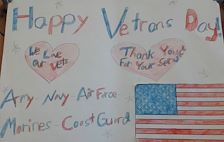 Happy Vetrans Day!
We Love
Our Vets
Thank You
For Your
Army Navy Air Force
Marines - Coast Guard